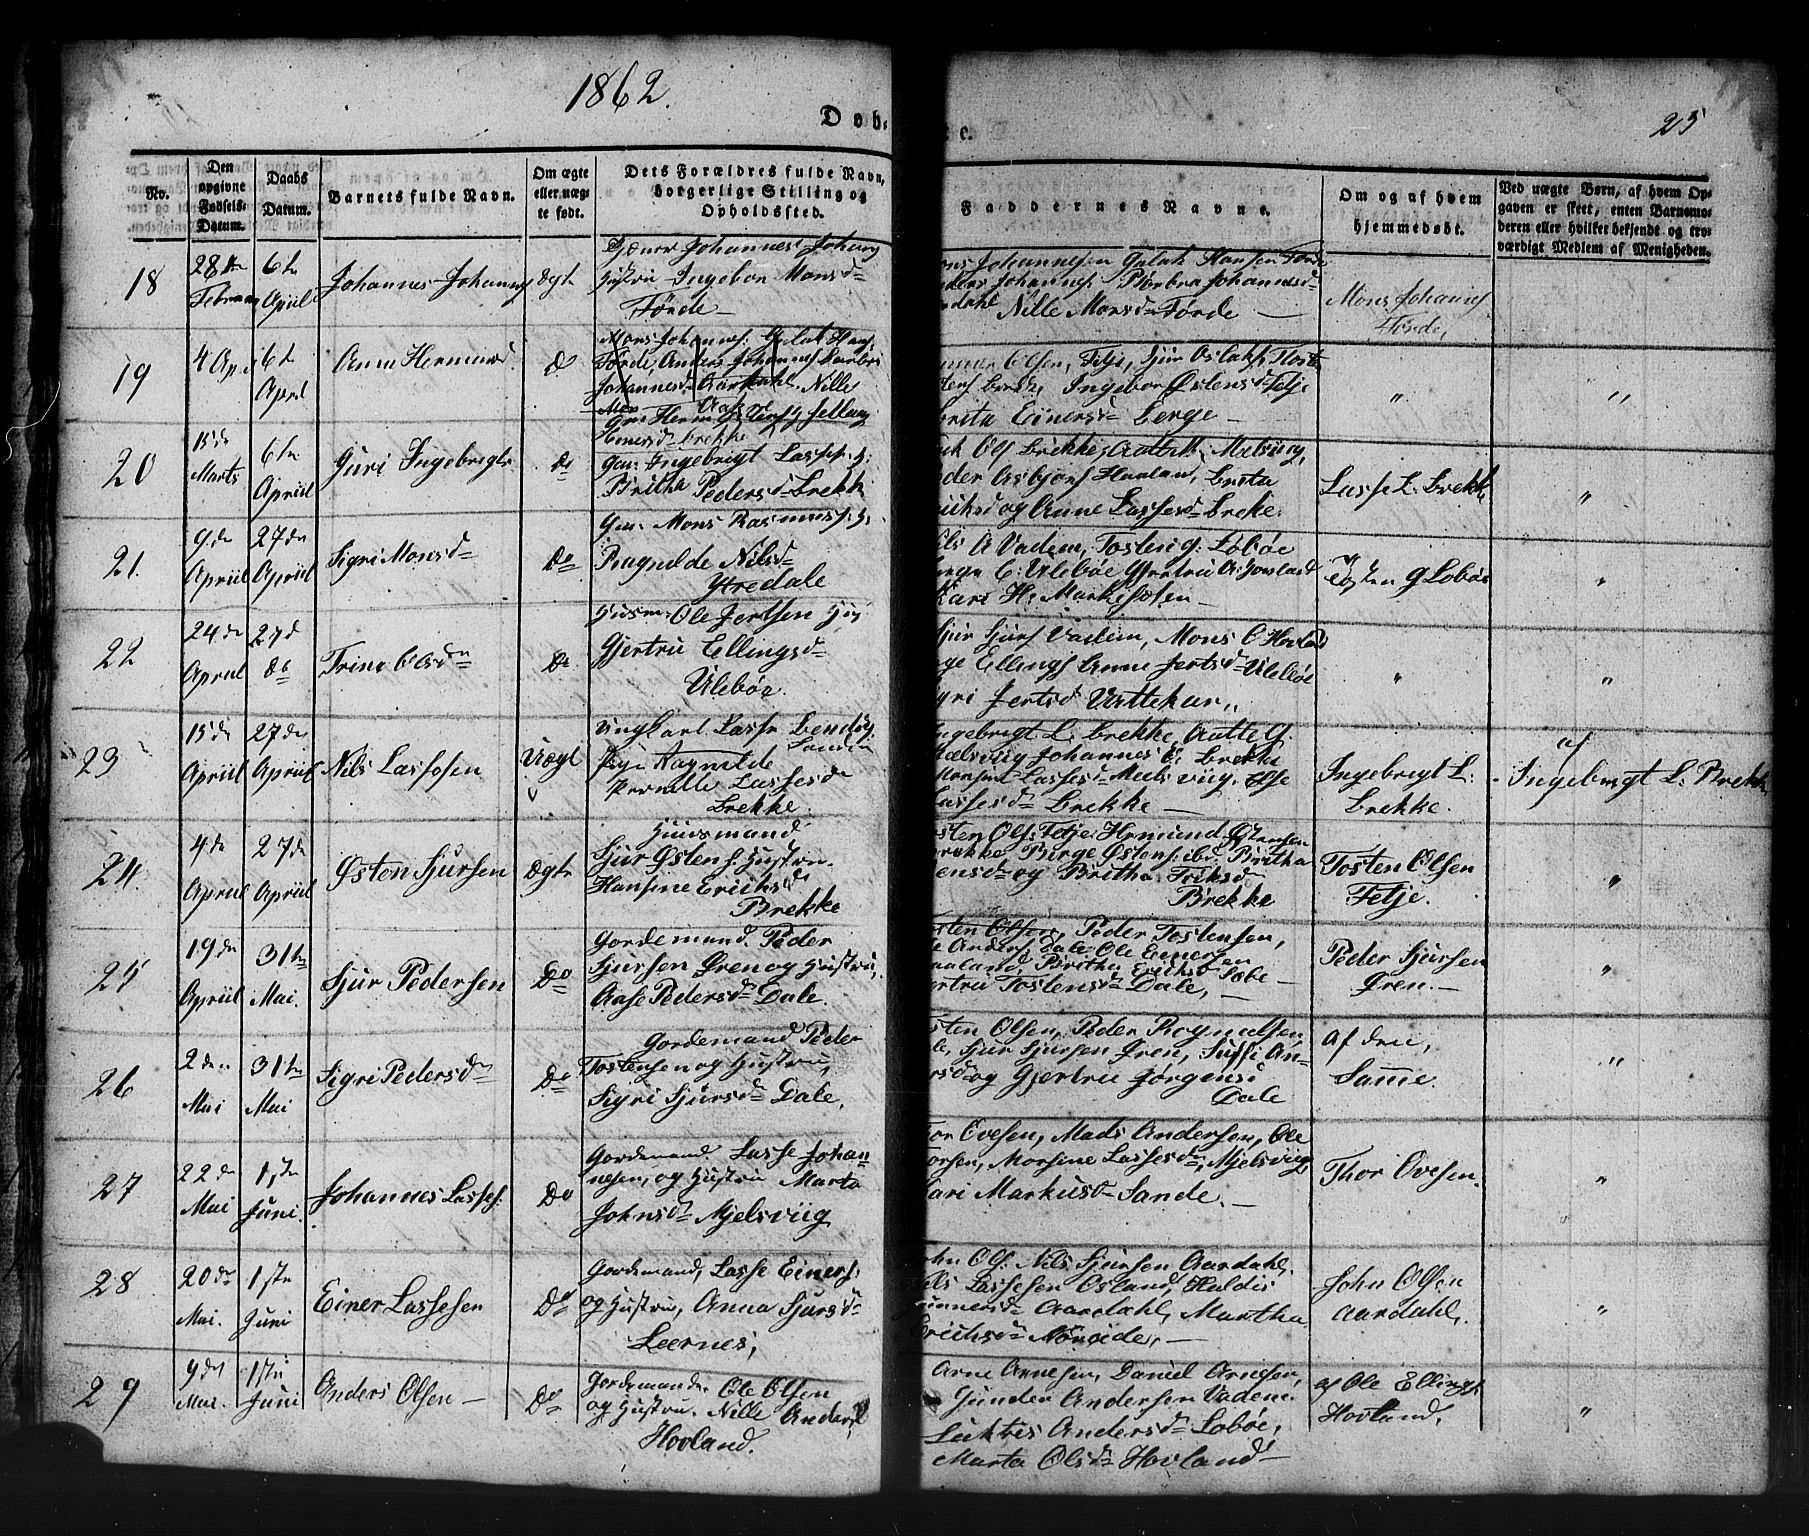 1862.
Døb-
e.
25
No.
Den opgivne Fødsels-Datum.
Daabs Datum.
Barnets fulde Navn.
Om ægte eller uægte født.
Dets Forældres fulde Navn, borgerlige Stilling og Opholdssted.
Faddernes Navne.
Om og af hvem hjemmedøbt.
Ved uægte Børn, af hvem Opgaven er skeet, enten Barnemoderen eller hvilket bekjendt og troværdigt Medlem af Menigheden.
18
28de Februar
6te Apriil
Johannes Johannes
Ægte
Johannes Johannes
Hustru Ingebor Monsd
Førde
Mons Johannesen
Hansen Førde
Nille Monsd Førde
Mons Johannes
Førde,
19
4 Apr
6te Aprl
Anne Hermund
Do
Mons Johannes:
Førde, Anders Johannes
Johannesd Aardahl, Nille
Brekke
Olsen, Fetje, Sjur Oslaks
Brekke, Ingebor Østensd Fetje
Brita Einersd Berge
"
"
20
15de Marts
6te Apriil
Guri Ingebrigts
Do
Gm: Ingebrigt Lasses: H:
Britha Pedersd Brekke
Ols Brekke,
Asbjørns Haaland, Brita
og Anne Lassesd Brekke.
Lasse L. Brekke
"
21.
9de Apriil
27de Apriil
Sigri Monsd
Do
Gm: Mons Rasmuss: H:
Ragnilde Nilsd
Ytredale
A Vadem, Tosten G: Lobøe
E: Ulebøe Gjertru A: Hovland
Kari H:
Tosten G Lobøe
"
22
24de Apriil
27de do
Trine Olsdn
Do
Husm: Ole Jertsen H:
Gjertru Ellingsd
Ulebøe.
Sjur Sjurs Vadem, Mons O Hovland
Ellings Anne Jertsd Ulebøe
Jertsd Vattekar,
"
"
23
15de Apriil
27de Apriil
Nils Lassesen
Uægt
Ungkarl Lasse Bendix
Pige Ragnilde
Pernille Lassesd
Brekke.
Ingebrigt L. Brekke, Aatte G.
Mælsviig Johannes E. Brekke
Lassesd Mælsviig, Else
Lassesd Brekke
Ingebrigt L:
Brekke.
af
Ingebrigt L: Brekke
24.
4de Apriil
27de Apriil
Østen Sjursen
Ægte
Huusmand
Sjur Østens: Hustru
Hansine Erichsd
Brekke
Tosten Ols: Fetje, Hermund Østensen
Brekke Birge Østens: ibd. Britha
og Britha Eriksd
Brekke
Tosten Olsen
Fetje.
"
25
19de Apriil
31te Mai
Sjur Pedersen
Do
Gordemand. Peder
Sjursen Øren og Hustru,
Aase Pedersd Dale.
Tosten Olsen, Peder Tostensen,
Anders Dale, Ole Einersen
Haaland, Britha Erichsd Sæbe
Gjertru Tostensd Dale,
Peder Sjursen
Øren.
"
26
2den Mai
31te Mai
Sigri Pedersd
Do
Gordemand Peder
Tostensen og Hustru,
Sigri Sjursd Dale,
Tosten Olsen, Peder Rognalsen,
Sjur Sjursen Øren,
og Gjertru Jørgens
Dale
af den
Samme.
"
27
22de Mai
1ste Juni.
Johannes Lasses:
Do
Gordemand. Lasse Johan-
nesen, og Hustru Marta
Johnsd Mjelsviig
Thor Ovesen, Mads Andersen, Ole
Thorsen, Morsine Lassesd, Mjelsviig,
Kari Markusd Sande.
Thor Ovesen.
"
28
20de Mai.
1ste Juni
Einer Lassesen
Do
Gordemand, Lasse Einers:
og Hustru, Anna Sjursd
Leernes,
John Ols. Nils Sjursen Aardahl.
Nils Lassesen Osland, Huldis
Gunnersd Aardahl, Martha
Erichsd
John Olsen
Aardahl.
"
29
9de Mai.
1ste Juni
Anders Olsen
Do
Gordemand. Ole Olsen
og Hustru. Nille Andersd
Hovland.
Arne Arnesen, Daniel Arnesen,
Gunder Andersen Vadem.
Andersd Lobøe,
Marta Olsd Hovland
af Ole Ellings
Hovland,
"